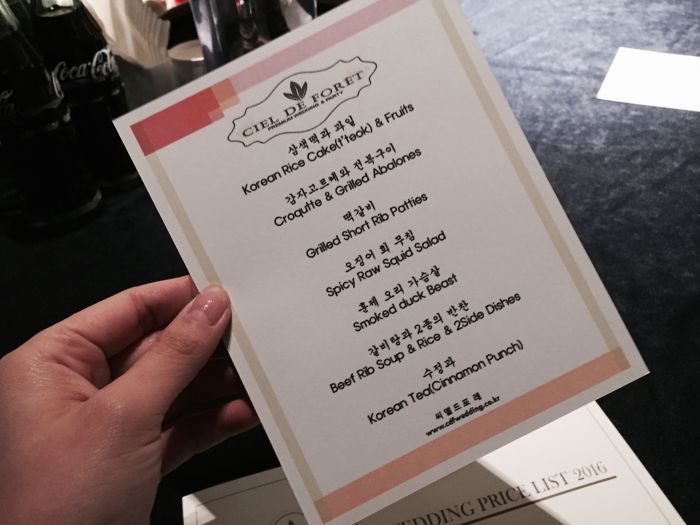 Coca-Cola
CIEL DE FORET
PREMIUM WEDDING & PARTY
삼색떡과 과일
Korean Rice Cake(t"teok) & Fruits
감자고르케와 전복구이
Croqutte & Grilled Abalones
떡갈비
Grilled Short Rib Patties
오징어 회 무침
Spicy Raw Squid Salad
훈제 오리 가슴살
Smoked duck Beast
갈비탕과 2종의 반찬
Beef Rib Soup & Rice & 2Side Dishes
수정과
Korean Tea(Cinnamon Punch)
씨엘드포레
www.cdfwedding.co.kr
WEDDING PRICE LIST 2016